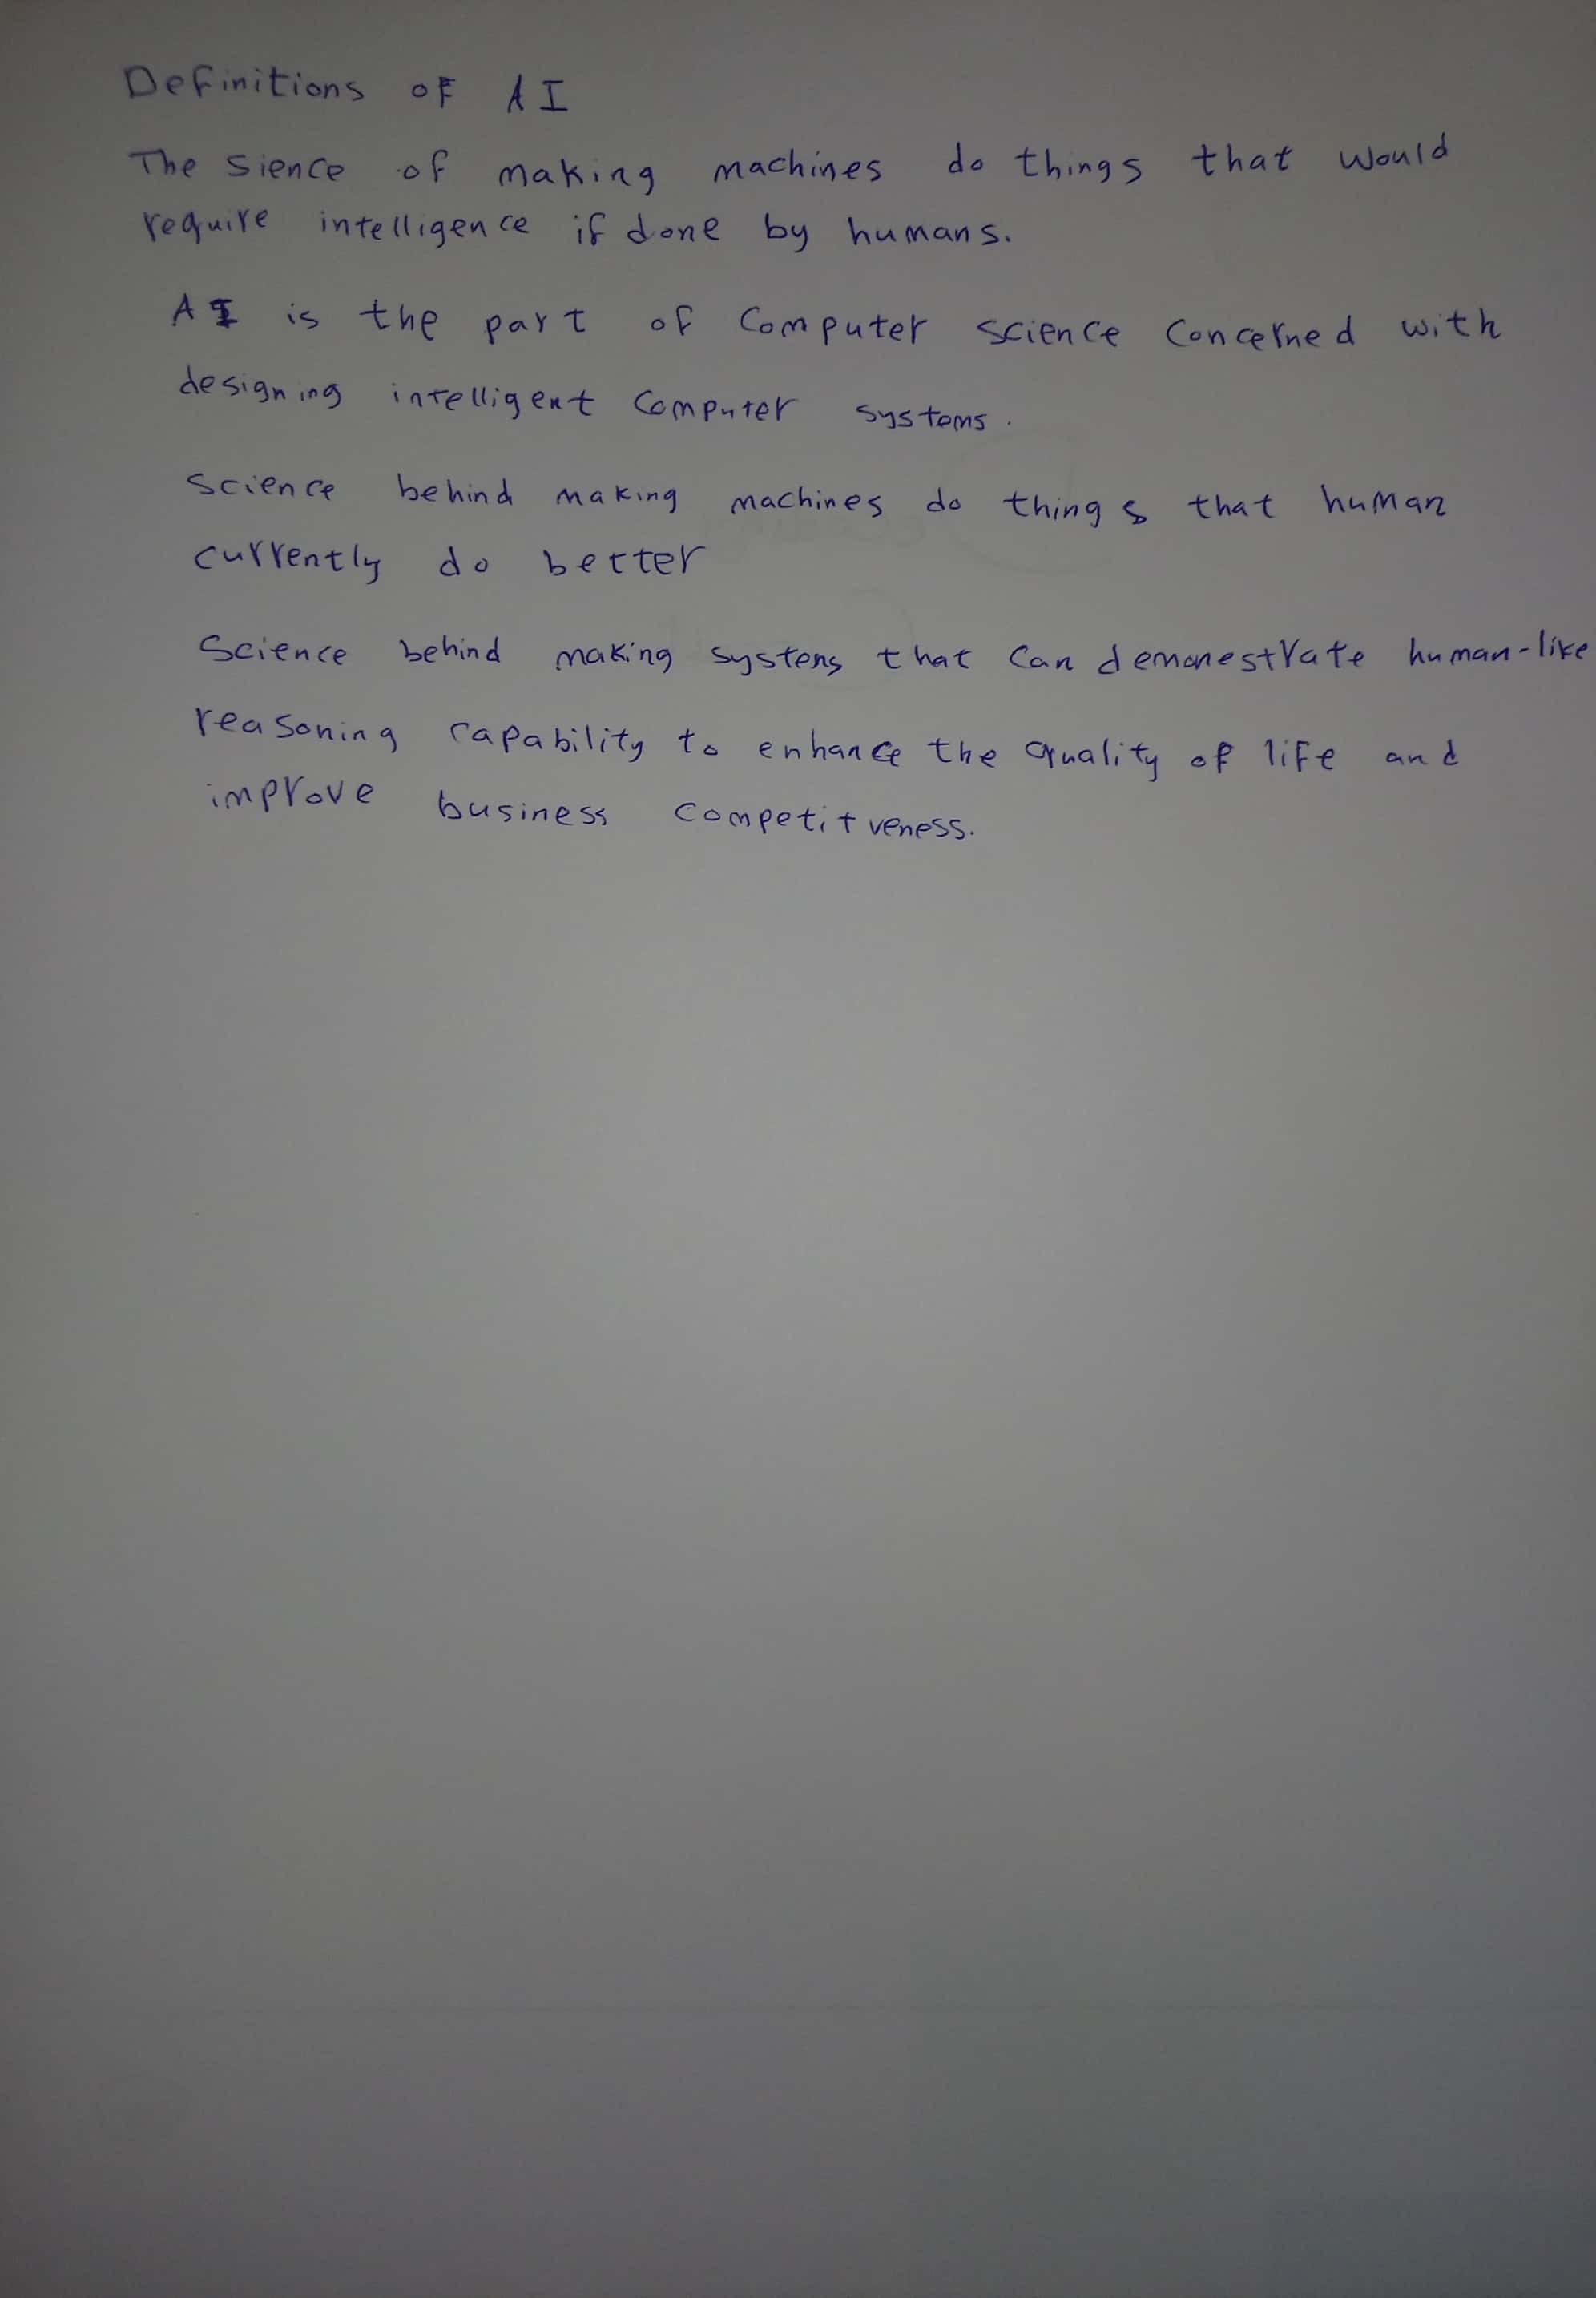 Definitions of AI
The sience of making machines do things that would
require intelligence if done by humans.
AI is the part of computer science concerned with
designing intelligent computer systems.
Science behind making machines do things that human
currently do better
Science behind making systems that can demonestrate human-like
reasoning capability to enhance the quality of life and
improve business competitveness.